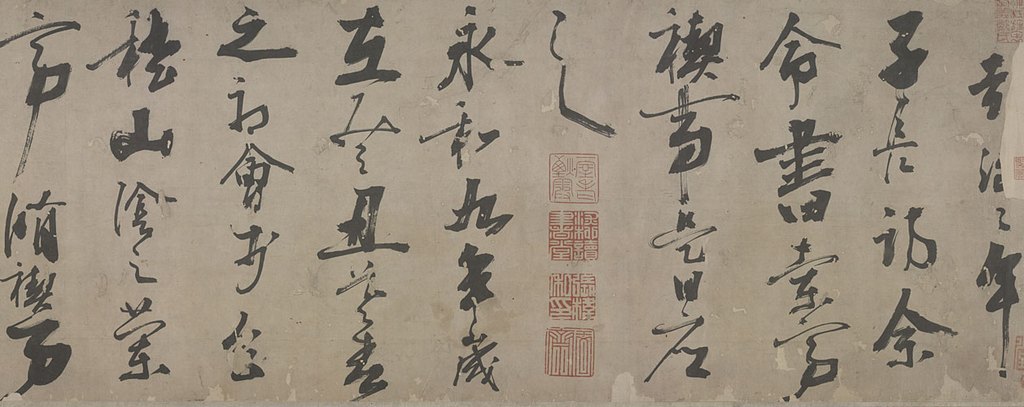 治二年
子長訪余
命書蘭亭
禊事是日應
之
永和九年歲
在癸丑暮春
之初會于會
稽山陰之蘭
亭脩禊事